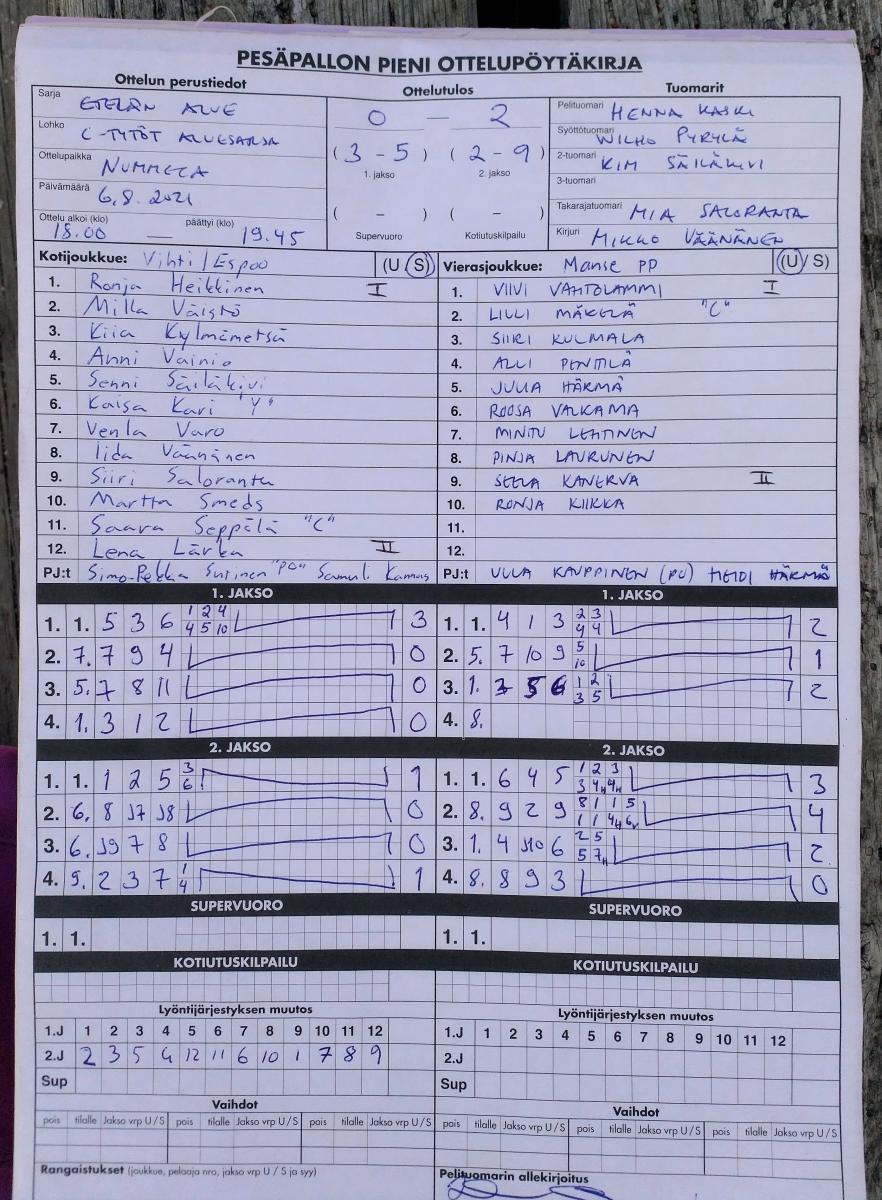 PESÄPALLON PIENI OTTELUPÖYTÄKIRJA
Ottelun perustiedot
Sarja ETELÄN ALUE
Lohko C-TYTÖT ALUESARJA
Ottelupaikka NUMMELA
Päivämäärä 6.8.2021
Ottelu alkoi (klo) päättyi (klo)
18.00 — 19.45
Ottelutulos
0 — 2
(3 - 5) (2 - 9)
1. jakso 2. jakso
( - ) ( - )
Supervuoro Kotiutuskilpailu
Tuomarit
Pelituomari HENNA KASKI
Syöttötuomari WILHO PYRYLÄ
2-tuomari KIM SÄILÄKIVI
3-tuomari
Takarajatuomari MIA SALORANTA
Kirjuri MIKKO VÄÄNÄNEN
Kotijoukkue: Vihti/Espoo (U/S)
1. Ronja Heikkinen I
2. Milla Väistö
3. Kiia Kylmämetsä
4. Anni Vainio
5. Senni Säiläkivi
6. Kaisa Kari "Y"
7. Venla Varo
8. Iida Väänänen
9. Siiri Saloranta
10. Martta Smeds
11. Saara Seppälä "C"
12. Lena Lärka II
PJ:t Simo-Pekka Sutinen "PO" Samuli
Vierasjoukkue: Manse PP (U/S)
1. VIIVI VAHTOLAMMI I
2. LILLI MÄKELÄ "C"
3. SIIRI KULMALA
4. ALLI PENTTILÄ
5. JULIA HÄRMÄ
6. ROOSA VALKAMA
7. MINTU LEHTINEN
8. PINJA LAURUNEN
9. SEELA KANERVA II
10. RONJA KIIKKA
11.
12.
PJ:t ULLA KAUPPINEN (PU) HEIDI HÄRMÄ
1. JAKSO
1. 1. 5 3 6 1 2 4 3
4 5 10
2. 7. 7 9 4 0
3. 5. 7 8 11 0
4. 1. 3 1 2 0
1. JAKSO
1. 1. 4 1 3 2 3 2
4 4
2. 5. 7 10 9 5 1
10
3. 1. 3 5 6 1 2 2
3 5
4. 8.
2. JAKSO
1. 1. 1 2 5 3 1
6
2. 6. 8 17 18 0
3. 6. 19 7 8 0
4. 9. 2 3 7 1 1
4
2. JAKSO
1. 1. 6 4 5 1 2 3 3
3 4H 4H
2. 8. 9 2 9 8 1 1 5 4
1 1 4H 6V
3. 1. 4 J10 6 2 5 2
5 7H
4. 8. 8 9 3 0
SUPERVUORO
1. 1.
SUPERVUORO
1. 1.
KOTIUTUSKILPAILU
KOTIUTUSKILPAILU
Lyöntijärjestyksen muutos
1.J 1 2 3 4 5 6 7 8 9 10 11 12
2.J 2 3 5 4 12 11 6 10 1 7 8 9
Sup
Lyöntijärjestyksen muutos
1.J 1 2 3 4 5 6 7 8 9 10 11 12
2.J
Sup
Vaihdot
pois tilalle Jakso vrp U/S pois tilalle Jakso vrp U/S pois tilalle Jakso vrp U/S
Vaihdot
pois tilalle Jakso vrp U/S pois tilalle Jakso vrp U/S pois tilalle Jakso vrp U/S
Rangaistukset (joukkue, pelaaja nro, jakso vrp U / S ja syy)
Pelituomarin allekirjoitus